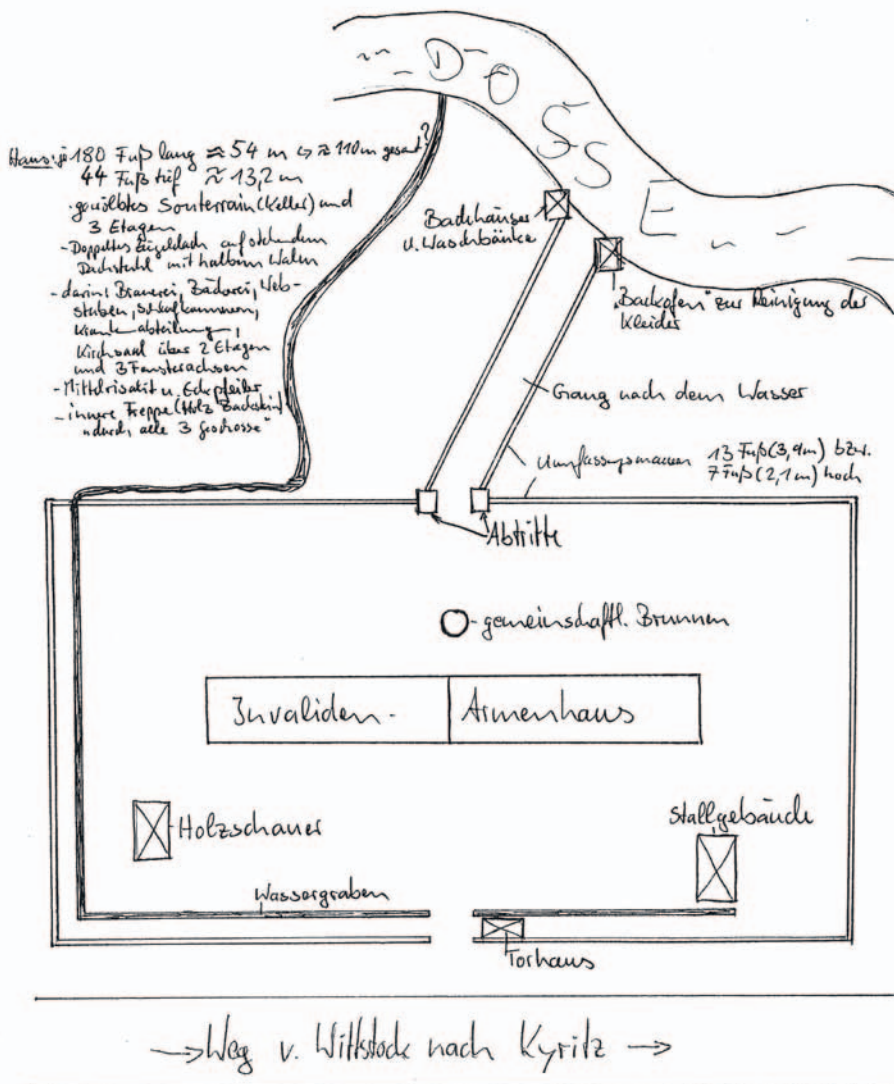 D O S S E
Haus: je 180 Fuß lang ≈ 54 m ↪ ≈ 110m gesamt?
44 Fuß tief ≈ 13,2 m
· gewölbtes Souterrain (Keller) und
3 Etagen
- Doppeltes Ziegeldach auf stehendem
Dachstuhl mit halbem Walm
- darin: Brauerei, Bäckerei, Web-
stuben, Schlafkammern,
Krankenabteilung,
Kirchsaal über 2 Etagen
und 3 Fensterachsen
- Mittelrisalit u. Eckpfeiler
- innere Treppe (Holz Backstein)
"durch alle 3 Geschosse"
Badehäuser
u. Waschbänke
"Backofen" zur Reinigung der
Kleider
Gang nach dem Wasser
Umfassungsmauern 13 Fuß (3,9m) bzw.
7 Fuß (2,1m) hoch
Abtritte
gemeinschaftl. Brunnen
Invaliden- Armenhaus
Holzschauer
Stallgebäude
Wassergraben
Torhaus
→ Weg v. Wittstock nach Kyritz →